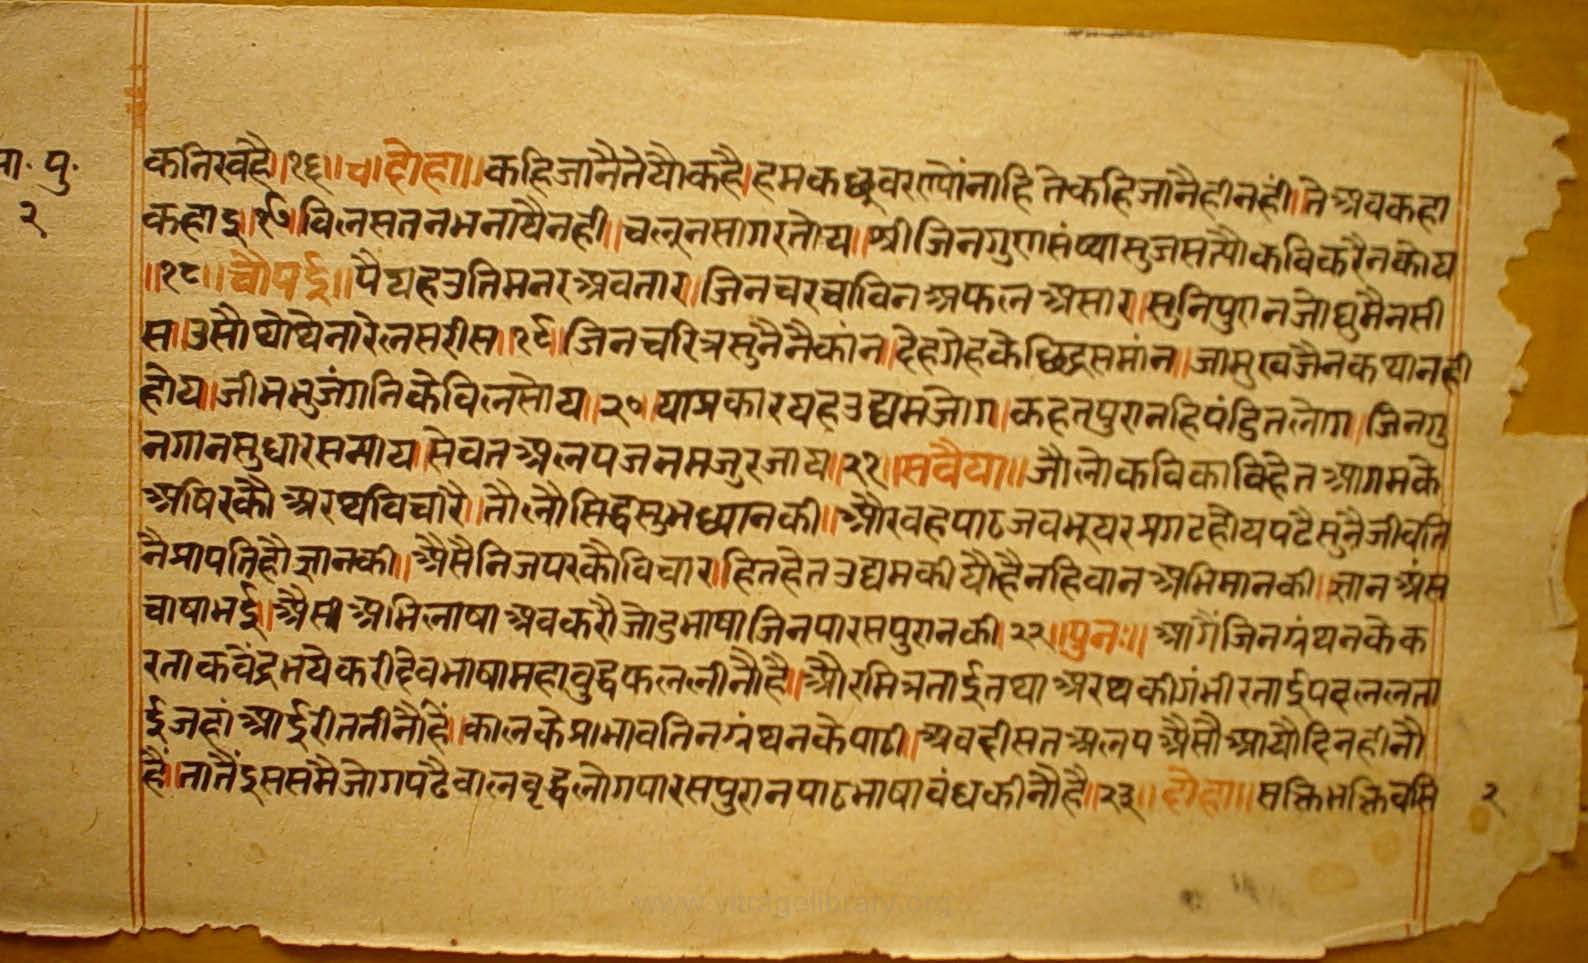 पा. पु.
२
कतिरवहै॥१६॥चादोहा॥कहिजानैतेयौकहै।हमकछूवरण्योंनाहि तेकहिजानैहीनहीं॥ते अवकहा
कहाइ॥१७॥विलसतनभनापैनही॥चलूनसागरतोय॥श्रीजिनगुणसंख्यासुजसत्यौकविकरैनकोय
॥१८॥चौपई॥पैयहउतिमनरअवतार॥जिनचरचाविनअफलअसार॥सुनिपुराणजोघुमैनसी
स॥उसौथोथेनारेलसरीस॥१९॥जिनचरित्रसुनैनैकांन॥देहगेहकेछिद्रसमांन॥जामुखजैनकथानही
होय॥जीभभुजंगनिकेविलसोय॥२०॥याप्रकारयहउद्यमजोग।कहतपुरानहिपंडितलोग॥जिनगु
नगानसुधारसन्हाय॥सेवतअलपजनमजुरजाय॥२१॥सवैया॥जौलोकविकाविहेतआगमके
अषिरकौअरथविचारै॥तौलौसिद्धसुभध्यानकी॥औरवहपाठजवभूपरप्रगटहोयपढैसुनैजीवति
नैप्रापतिहौज्ञानकी॥अैसैनिजपरकौविचार।हितहेतउद्यमकीयौहैनहिवानअभिमानकी॥ज्ञानअंस
चाषाभई॥अैसीअभिलाषाअवकरौजोडुभाषाजिनपारसपुरानकी॥२२॥पुनः॥आगैंजिनग्रंथनकेक
रताकवेंद्रभयेकरीदेवभाषामहावुद्धफललीनौहै॥औरमित्रताईतथाअरथकीगंभीरताईपदललता
ईजहांआईरीततीनौहैं॥कालकेप्राभावतिनग्रंथनकेपाठी॥अवदीसतअलपअैसौआयौदिनहीनौ
हैं॥तातैंइससमैजोगपढैवालवृद्धलोगपारसपुरानपाठभाषावंधकीनौहै॥२३॥दोहा॥सक्तिभक्तिवसि
२
www.vitragelibrary.org